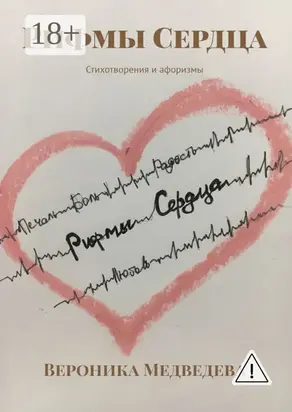 18+
РИФМЫ СЕРДЦА
Стихотворения и афоризмы
Печаль Боль Радость
Рифмы Сердца
Любовь
ВЕРОНИКА МЕДВЕДЕВА